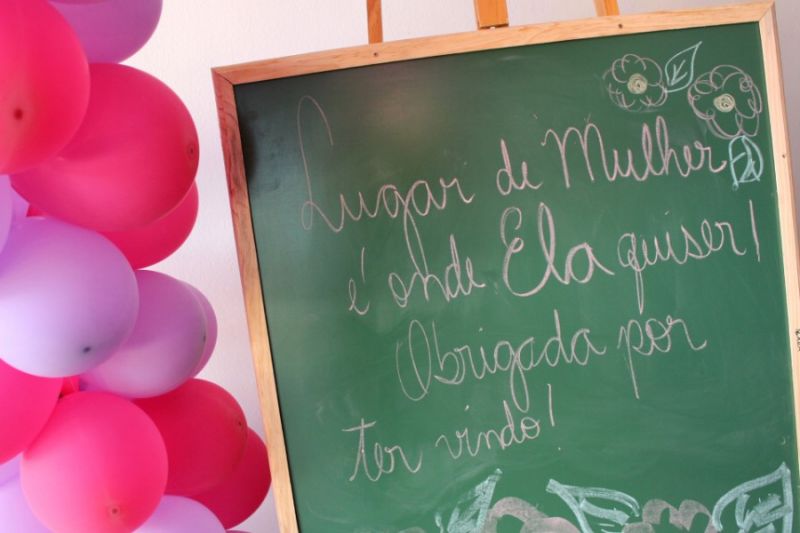 Lugar de Mulher
é onde Ela quiser!
Obrigada por
ter vindo!